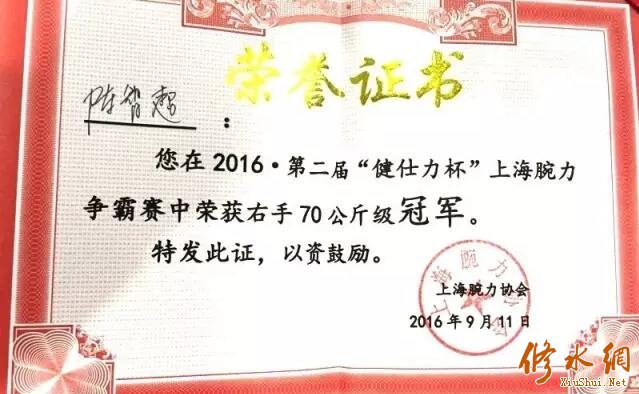 荣誉证书
陈智超：
您在2016·第二届“健仕力杯”上海腕力
争霸赛中荣获右手70公斤级冠军。
特发此证，以资鼓励。
上海腕力协会
上海腕力协会
2016年9月11日
修水網
XiuShui.Net